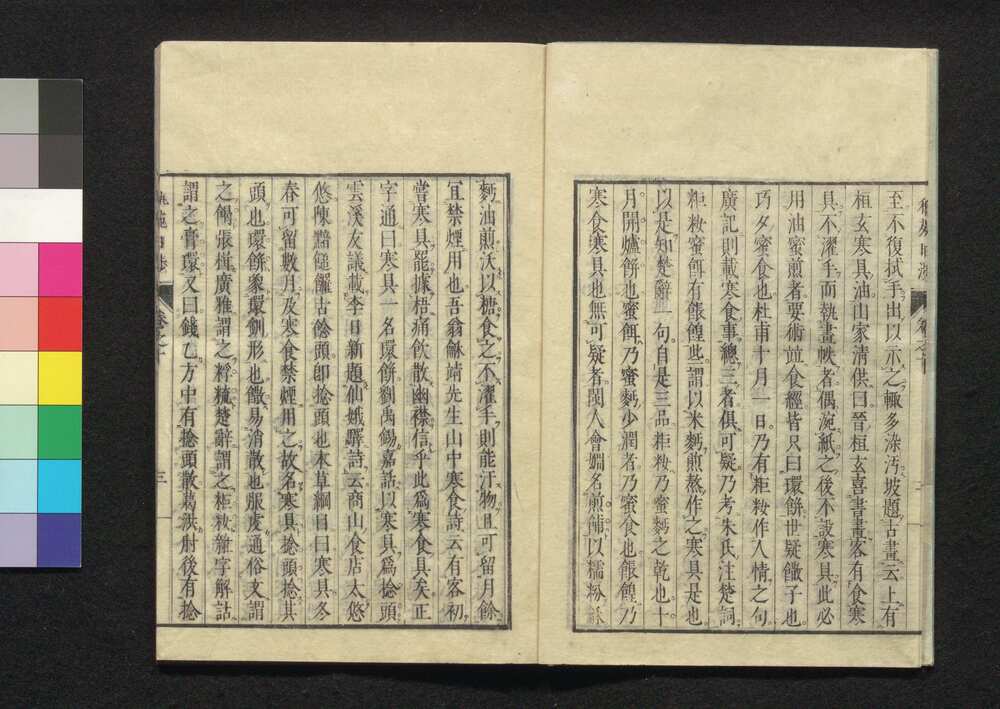 至不復拭手出以示之輒多涂汚坡題古畫云上有
桓玄寒具油山家清供曰晉桓玄喜書畫客有食寒
具不濯手而執書帙者偶涴紙之後不設寒具此必
用油蜜煎者要術竝食經皆只曰環餅世疑饊子也
巧夕蜜食也杜甫十月一日乃有粔籹作人情之句
廣記則載寒食事總三者俱可疑乃考朱氏注楚詞
粔籹蜜餌有餦餭些謂以米麪煎熬作之寒具是也
以是知楚辭一句自是三品粔籹乃蜜麪之乾也十
月開爐餅也蜜餌乃蜜麪少潤者乃蜜食也餦餭乃
寒食寒具也無可疑者閩人會姻名煎餔以糯粉
麪油煎沃以糖食之不濯手則能汙物且可留月餘
宜禁煙用也吾翁龢靖先生山中寒食詩云有客初
嘗寒具罷據梧痛飲散幽襟信乎此爲寒食具矣正
字通曰寒具一名環餅劉禹錫嘉話以寒具爲捻頭
雲溪友議載李日新題仙娥驛詩云商山食店太悠
悠陳黯䭔饠古餕頭卽捻頭也本草綱目曰寒具冬
春可留數月及寒食禁煙用之故名寒具捻頭捻其
頭也環餅象環釧形也饊易消散也服虔通俗文謂
之餲張揖廣雅謂之粰𥹷楚辭謂之粔籹雜字解詁
謂之膏環又曰錢乙方中有捻頭散葛洪肘後有捻
卷之
三